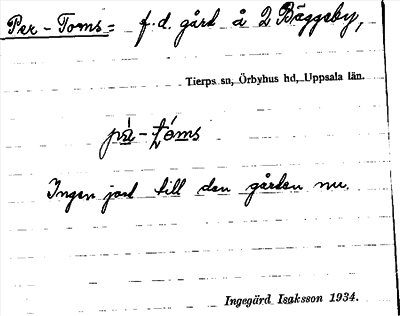 Per-Toms = f.d. gård å 2 Bäggeby,
Tierps sn, Örbyhus hd, Uppsala län.
pä̀-tóms
Ingen jord till den gården nu.
Ingegärd Isaksson 1934.